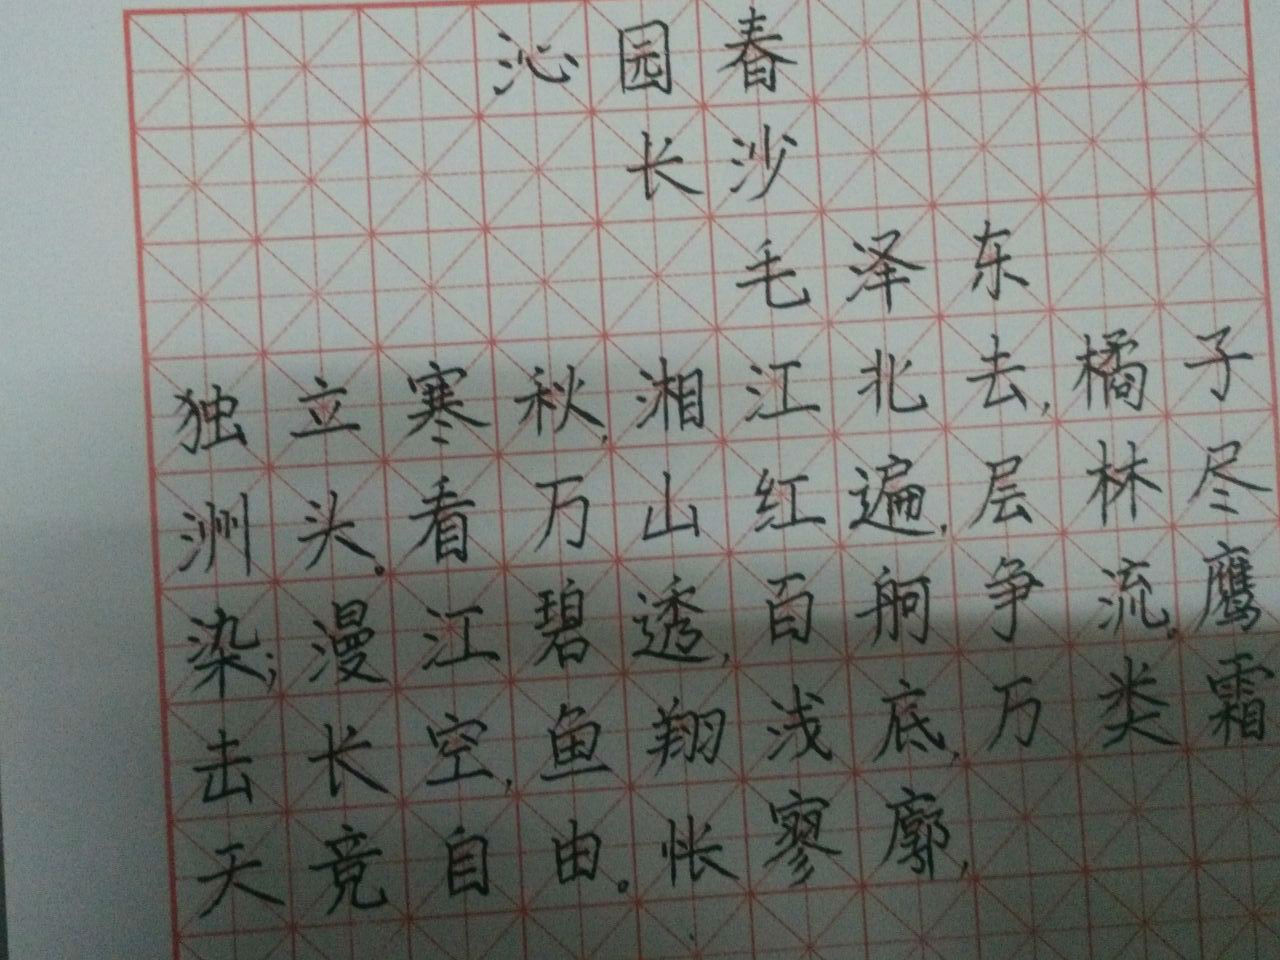 沁园春
长沙
毛泽东
独立寒秋,湘江北去,橘子
洲头。看万山红遍,层林尽
染;漫江碧透,百舸争流。鹰
击长空,鱼翔浅底,万类霜
天竟自由。怅寥廓,